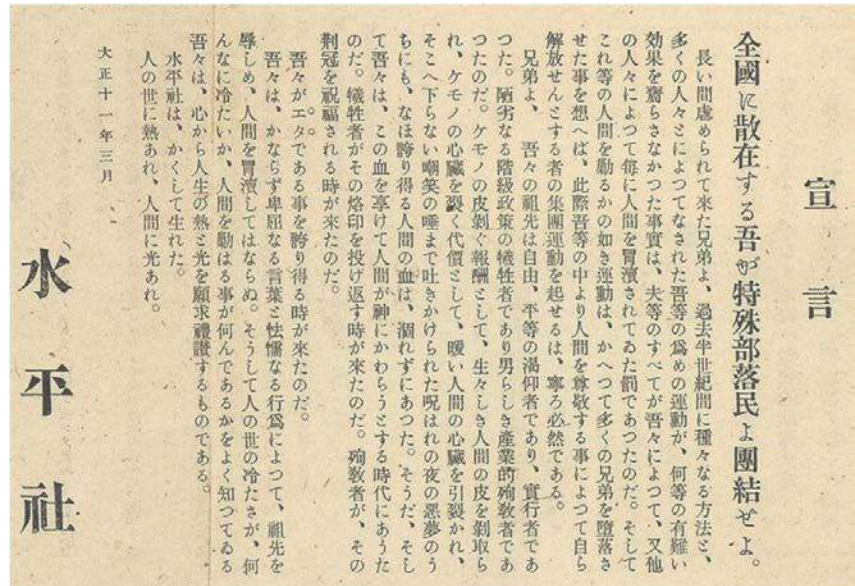 宣言
全國に散在する吾が特殊部落民よ團結せよ。
長い間虐められて來た兄弟よ、過去半世紀間に種々なる方法と、
多くの人々とによつてなされた吾等の爲めの運動が、何等の有難い
効果を齎らさなかつた事實は、夫等のすべてが吾々によつて、又他
の人々によつて毎に人間を冐瀆されてゐた罰であつたのだ。そして
これ等の人間を勦るかの如き運動は、かへつて多くの兄弟を墮落さ
せた事を想へば、此際吾等の中より人間を尊敬する事によつて自ら
解放せんとする者の集團運動を起せるは、寧ろ必然である。
兄弟よ、吾々の祖先は自由、平等の渇仰者であり、實行者であ
つた。陋劣なる階級政策の犧牲者であり男らしき産業的殉敎者であ
つたのだ。ケモノの皮剝ぐ報酬として、生々しき人間の皮を剝取ら
れ、ケモノの心臟を裂く代價として、暖い人間の心臟を引裂かれ、
そこへ下らない嘲笑の唾まで吐きかけられた呪はれの夜の惡夢のう
ちにも、なほ誇り得る人間の血は、涸れずにあつた。そうだ、そし
て吾々は、この血を享けて人間が神にかわらうとする時代にあうた
のだ。犧牲者がその烙印を投げ返す時が來たのだ。殉敎者が、その
荆冠を祝福される時が來たのだ。
吾々がエタである事を誇り得る時が來たのだ。
吾々は、かならず卑屈なる言葉と怯懦なる行爲によつて、祖先を
辱しめ、人間を冐瀆してはならぬ。そうして人の世の冷たさが、何
んなに冷たいか、人間を勦はる事が何んであるかをよく知つてゐる
吾々は、心から人生の熱と光を願求禮讃するものである。
水平社は、かくして生れた。
人の世に熱あれ、人間に光あれ。
大正十一年三月
水平社